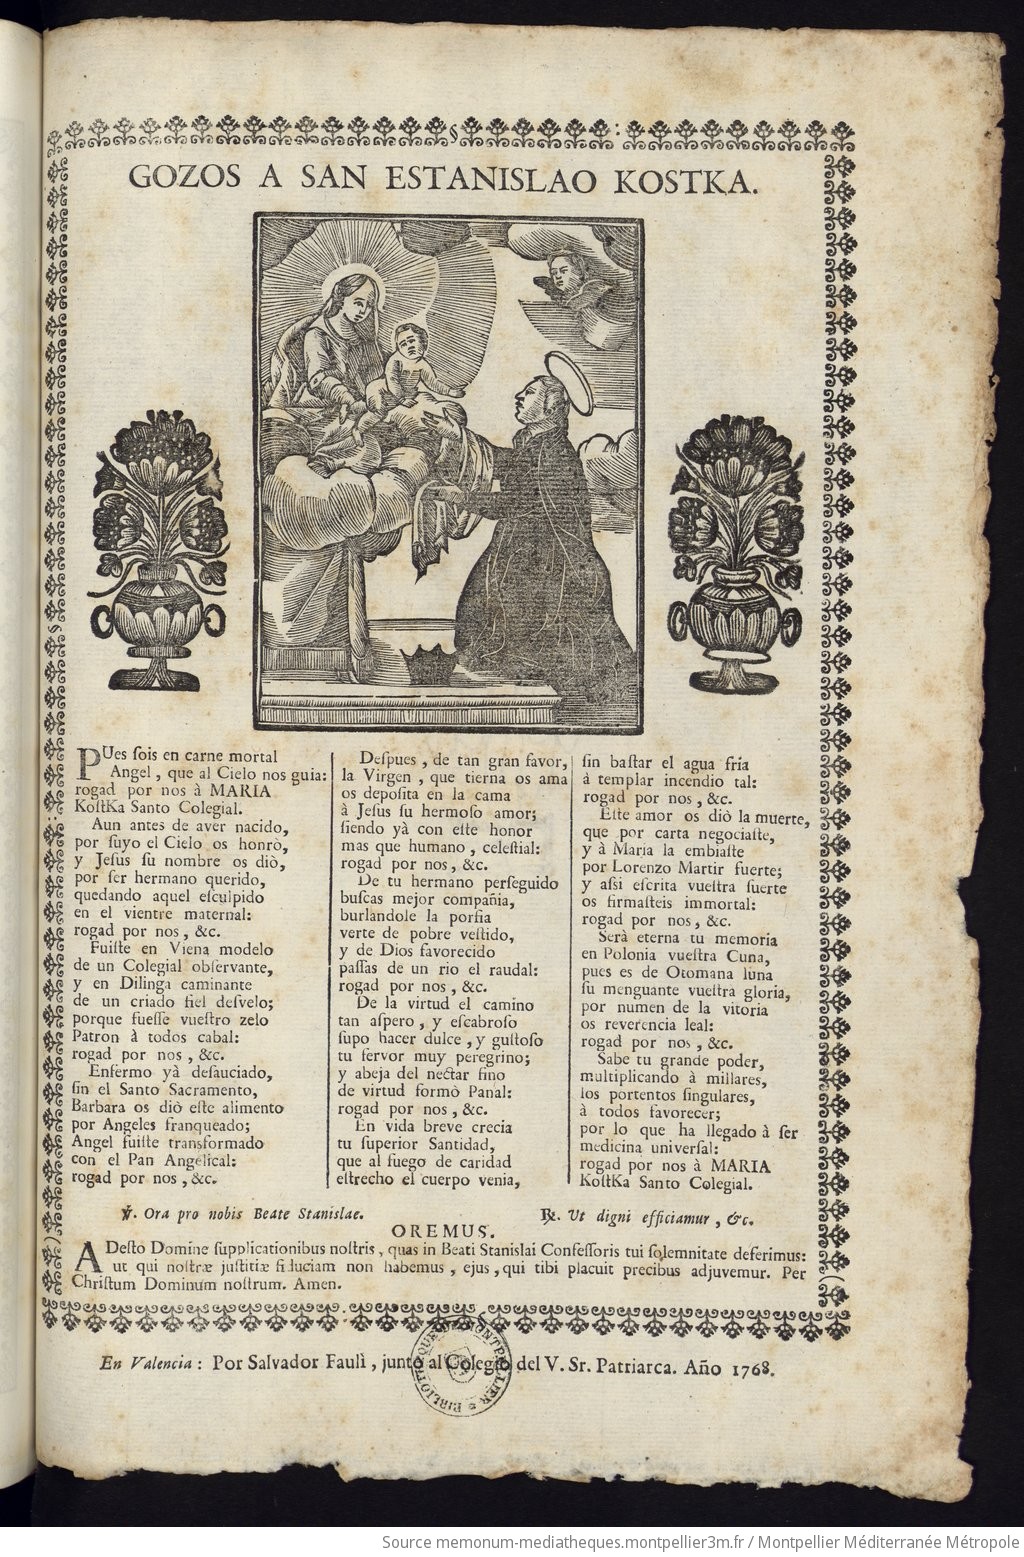 GOZOS A SAN ESTANISLAO KOSTKA.
PUes ſois en carne mortal
Angel, que al Cielo nos guia:
rogad por nos à MARIA
KoſtKa Santo Colegial.
Aun antes de aver nacido,
por ſuyo el Cielo os honrò,
y Jeſus ſu nombre os diò,
por ſer hermano querido,
quedando aquel eſculpido
en el vientre maternal:
rogad por nos, &c.
Fuiſte en Viena modelo
de un Colegial obſervante,
y en Dilinga caminante
de un criado fiel deſvelo;
porque fueſſe vueſtro zelo
Patron à todos cabal:
rogad por nos, &c.
Enfermo yà deſauciado,
ſin el Santo Sacramento,
Barbara os diò eſte alimento
por Angeles franqueado;
Angel fuiſte transformado
con el Pan Angelical:
rogad por nos, &c.
Deſpues, de tan gran favor,
la Virgen, que tierna os ama
os depoſita en la cama
à Jeſus ſu hermoſo amor;
ſiendo yà con eſte honor
mas que humano, celeſtial:
rogad por nos, &c.
De tu hermano perſeguido
buſcas mejor compañia,
burlandole la porfia
verte de pobre veſtido,
y de Dios favorecido
paſſas de un rio el raudal:
rogad por nos, &c.
De la virtud el camino
tan aſpero, y eſcabroſo
ſupo hacer dulce, y guſtoſo
tu fervor muy peregrino;
y abeja del nectar fino
de virtud formò Panal:
rogad por nos, &c.
En vida breve crecia
tu ſuperior Santidad,
que al fuego de caridad
eſtrecho el cuerpo venia,
ſin baſtar el agua fria
à templar incendio tal:
rogad por nos, &c.
Eſte amor os diò la muerte,
que por carta negociaſte,
y à Maria la embiaſte
por Lorenzo Martir fuerte;
y aſsi eſcrita vueſtra ſuerte
os firmaſteis immortal:
rogad por nos, &c.
Serà eterna tu memoria
en Polonia vueſtra Cuna,
pues es de Otomana luna
ſu menguante vueſtra gloria,
por numen de la vitoria
os reverencia leal:
rogad por nos, &c.
Sabe tu grande poder,
multiplicando à millares,
los portentos ſingulares,
à todos favorecer;
por lo que ha llegado à ſer
medicina univerſal:
rogad por nos à MARIA
KoſtKa Santo Colegial.
℣. Ora pro nobis Beate Stanislae.
℟. Ut digni efficiamur, &c.
OREMUS.
ADeſto Domine ſupplicationibus noſtris, quas in Beati Stanislai Confeſſoris tui ſolemnitate deferimus:
ut qui noſtræ juſtitiæ fiduciam non habemus, ejus, qui tibi placuit precibus adjuvemur. Per
Chriſtum Dominum noſtrum. Amen.
En Valencia: Por Salvador Faulì, junto al Colegio del V. Sr. Patriarca. Año 1768.
BIBLIOTHEQUE DE MONTPELLIER
Source memonum-mediatheques.montpellier3m.fr / Montpellier Méditerranée Métropole